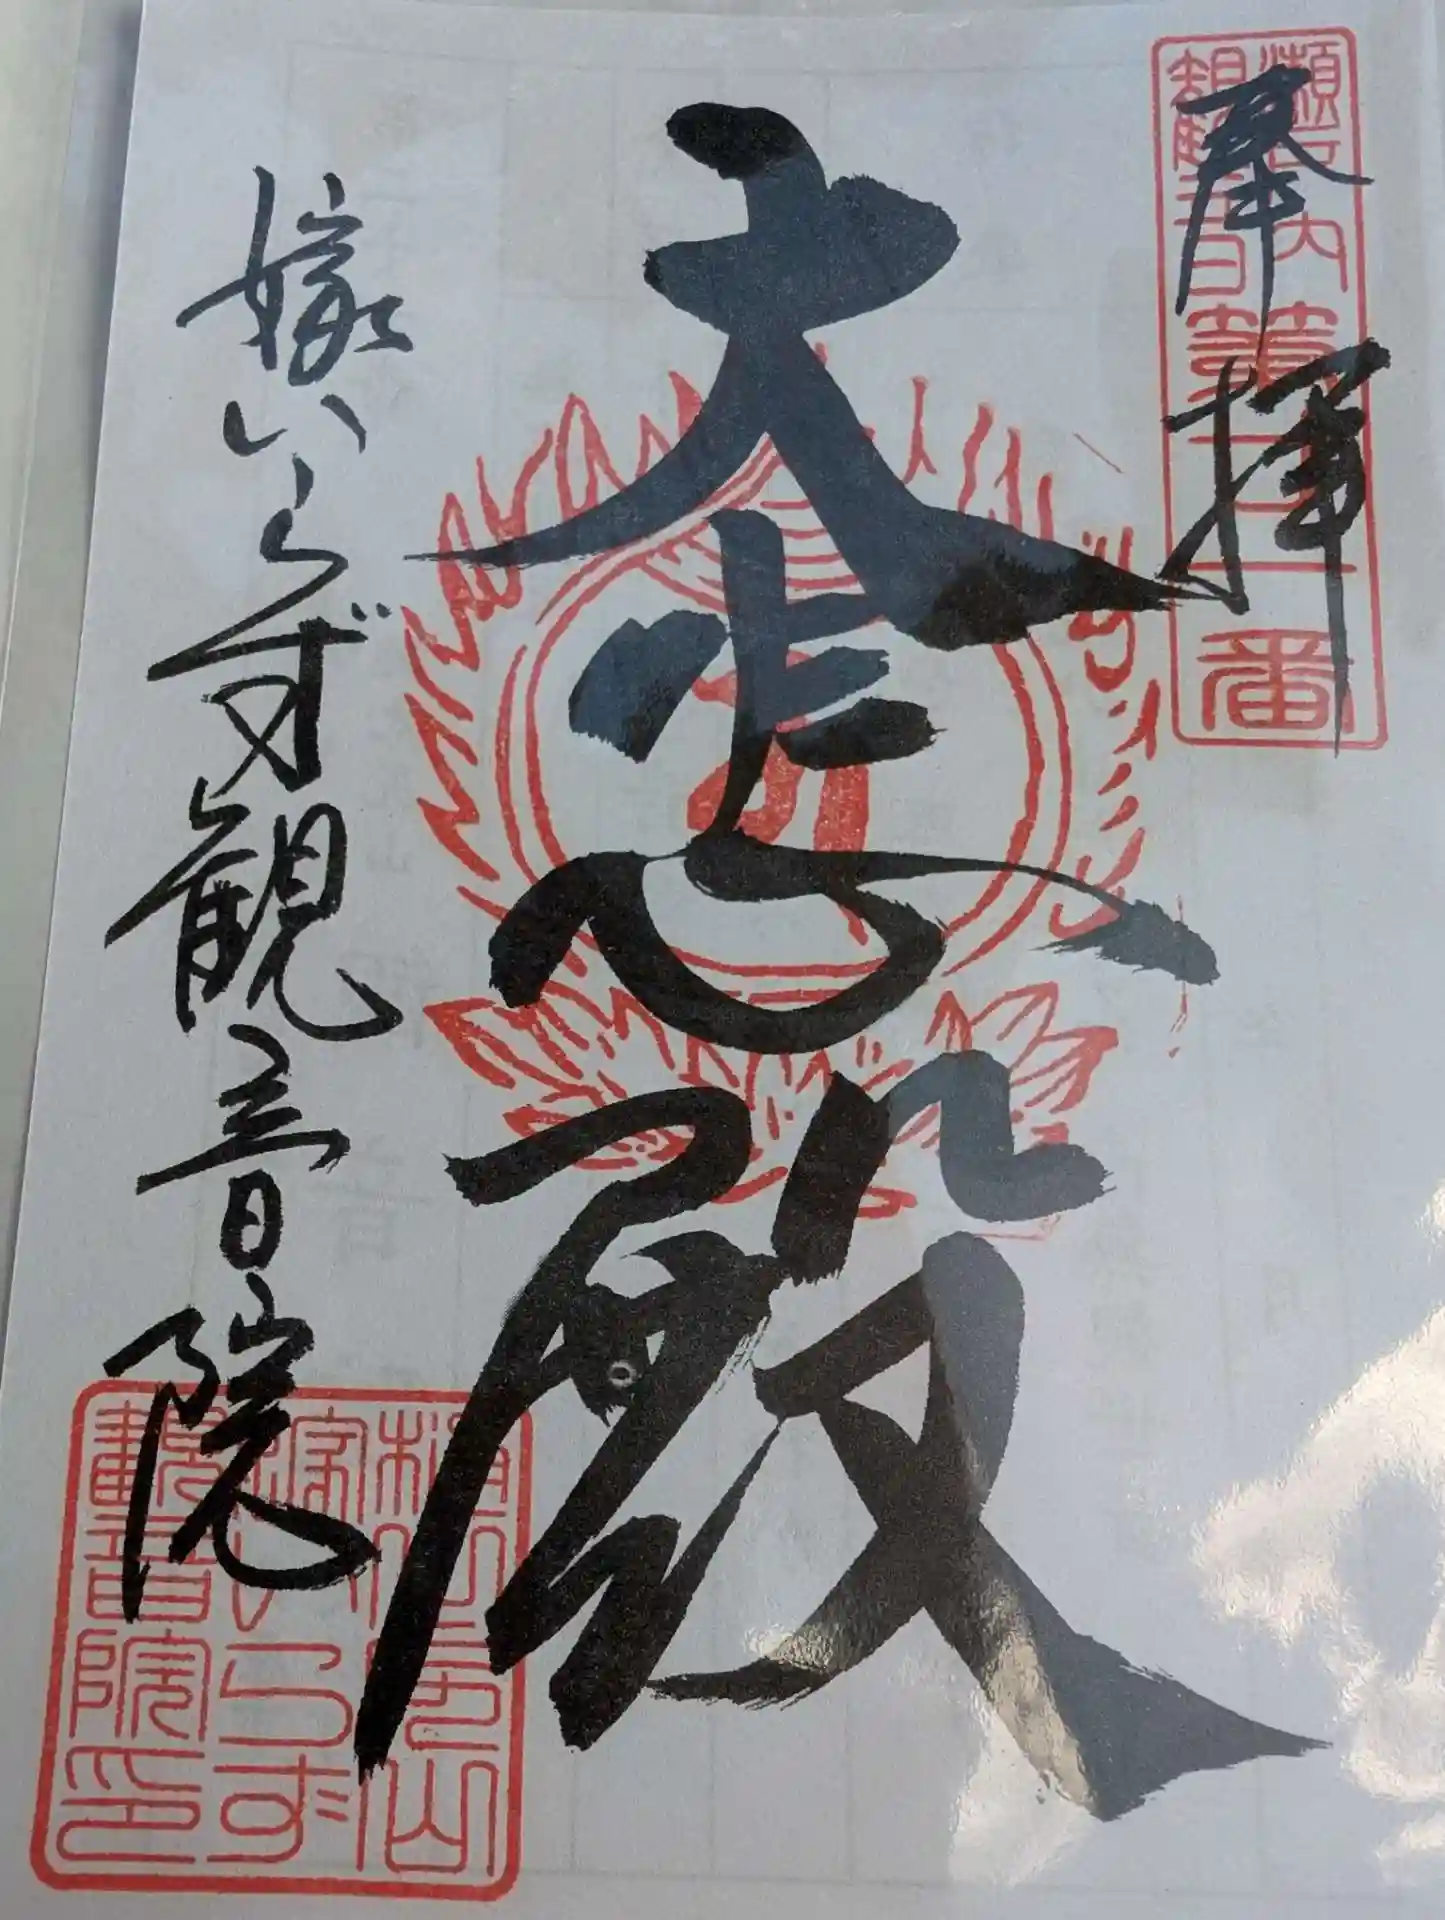 奉拝
瀬戸内観音霊場十一番
大悲殿
嫁いらず観音院
嫁いらず
観音院印